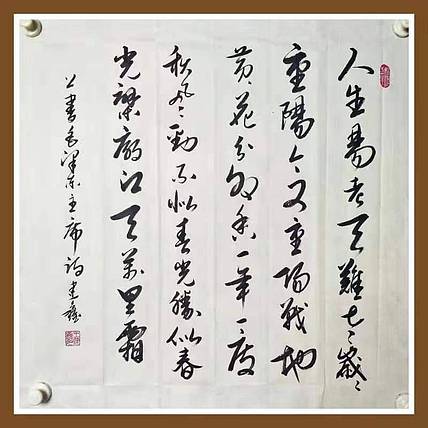 人生易老天難老歲々
重陽今又重陽戰地
黃花分外香一年一度
秋風勁不似春光勝似春
光寥廓江天萬里霜
書毛澤東主席 建